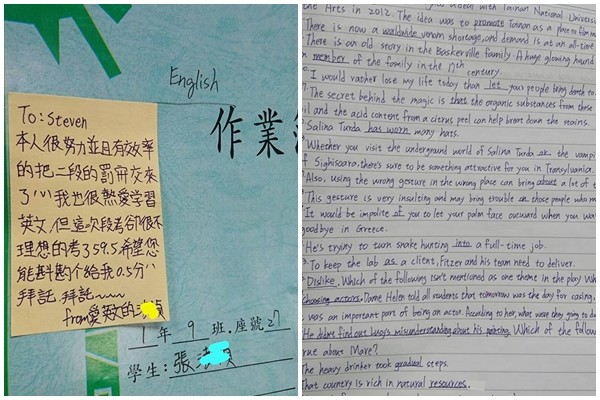 English
作業
To: Steven
本人很努力並且有效率
的把二段的罰冊交來
了^^我也很熱愛學習
英文,但這次段考卻很不
理想的考了59.5希望您
能斟酌个給我0.5分^^
拜託,拜託~~~
from愛數的
1年9班.座號27
學生:張
the Arts in 2012. The idea was to promote Tainan as a place to film
There is now a worldwide venom shortage, and demand is at an all-time
There is an old story in the Baskerville family. A huge glowing hound
member of the family in the 17th century.
I would rather lose my life today than let your people bring death to
The secret behind the magic is that the organic substances from these
and the acid content from a citrus peel can help break down the stains.
Salina Turda has worn many hats.
Whether you visit the underground world of Salina Turda or the
of Sighisoara, there's sure to be something attractive for you in Transylvania.
Also, using the wrong gesture in the wrong place can bring about a lot of
This gesture is very insulting and may bring trouble on those people who
It would be impolite of you to let your palm face outward when you
goodbye in Greece.
He's trying to turn snake hunting into a full-time job.
To keep the lab as a client, Fitzer and his team need to deliver.
Dislike. Which of the following isn't mentioned as one theme in the play
Choosing actors. Dame Helen told all students that tomorrow was the day for casting.
was an important part of being an actor. According to her, what were they going to
He didn't find out Lucy's misunderstanding about his painting. Which of the
true about More?
The heavy drinker took gradual steps.
That country is rich in natural resources.